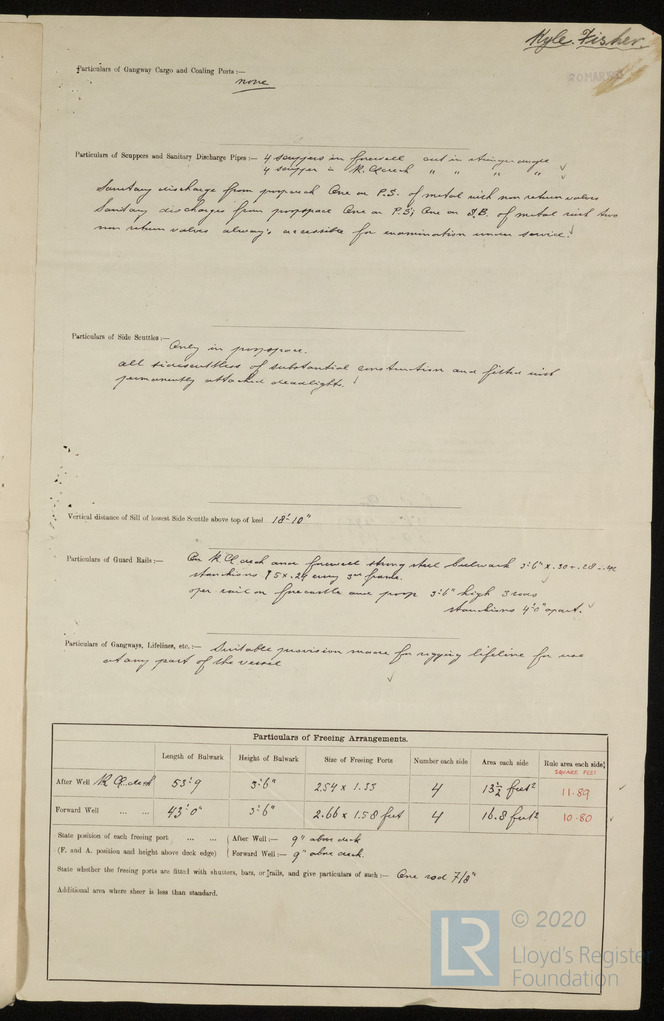 Kyle. Fisher.
20 MAR
Particulars of Gangway Cargo and Coaling Ports :—
none
Particulars of Scuppers and Sanitary Discharge Pipes :— 4 scuppers in forewell cut in stringer angle
4 scupper in R. Q deck " " " "
Sanitary discharge from One on P.S. of metal with non return valves
Sanitary discharges from poopspace One on P.S; One on S.B. of metal with two
non return valves always accessible for examination under service.
Particulars of Side Scuttles :—
Only in poopspace.
all sidescuttles of substantial construction and fitted with
permanently attached deadlights.
Vertical distance of Sill of lowest Side Scuttle above top of keel 18'-10"
Particulars of Guard Rails :— On R. Q deck and forewell strong steel bulwark 3'-6" x .30
stanchions 5 x .24 every 3rd frame.
open rail on forecastle and poop 3'-6" high 3 rows
stanchions 4'0" apart.
Particulars of Gangways, Lifelines, etc. :— Suitable provision made for rigging lifeline for use
at any part of the vessel
Particulars of Freeing Arrangements.
Length of Bulwark Height of Bulwark Size of Freeing Ports Number each side Area each side Rule area each side
SQUARE FEET
After Well R Q. deck 53'-9 3'-6" 2.54 x 1.33 4 13½ feet² 11.89
Forward Well ... ... 43'-0" 3'-6" 2.66 x 1.58 feet 4 16.8 feet² 10.80
State position of each freeing port ... ... After Well :— 9" above deck
(F. and A. position and height above deck edge) Forward Well :— 9" above deck.
State whether the freeing ports are fitted with shutters, bars, or rails, and give particulars of such :— One rod 7/8"
Additional area where sheer is less than standard.
LR
© 2020
Lloyd's Register
Foundation